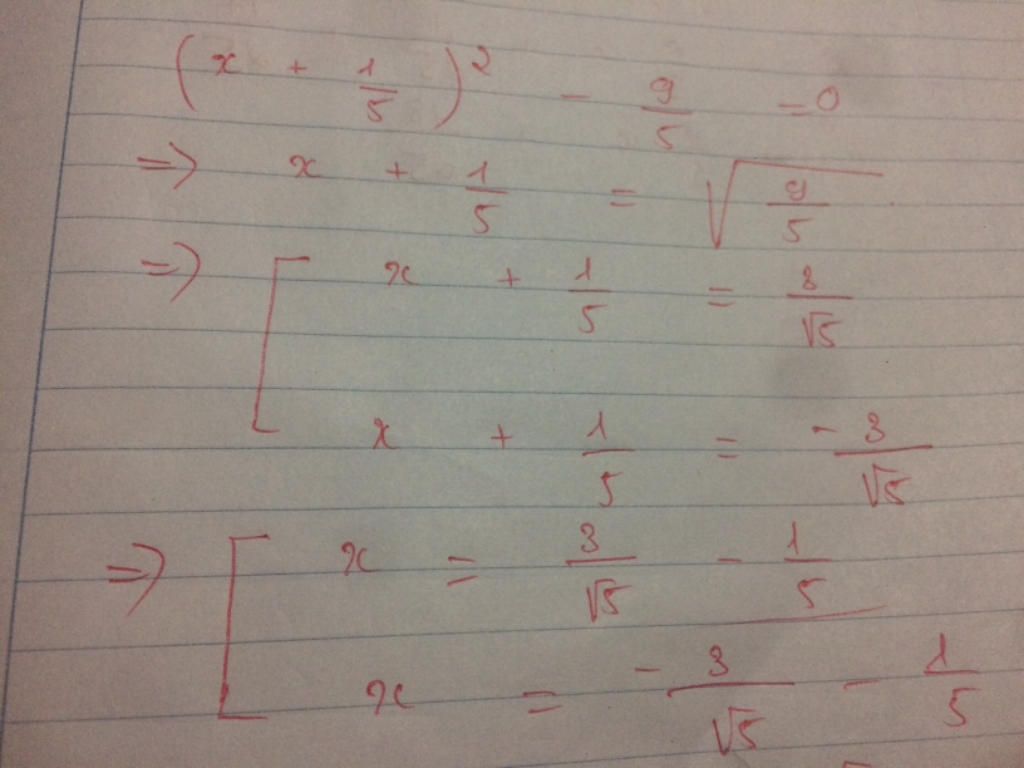 (x + 1/5)² - 9/5 = 0
=> x + 1/5 = √(9/5)
=> [ x + 1/5 = 3/√5
x + 1/5 = - 3/√5
=> [ x = 3/√5 - 1/5
x = - 3/√5 - 1/5